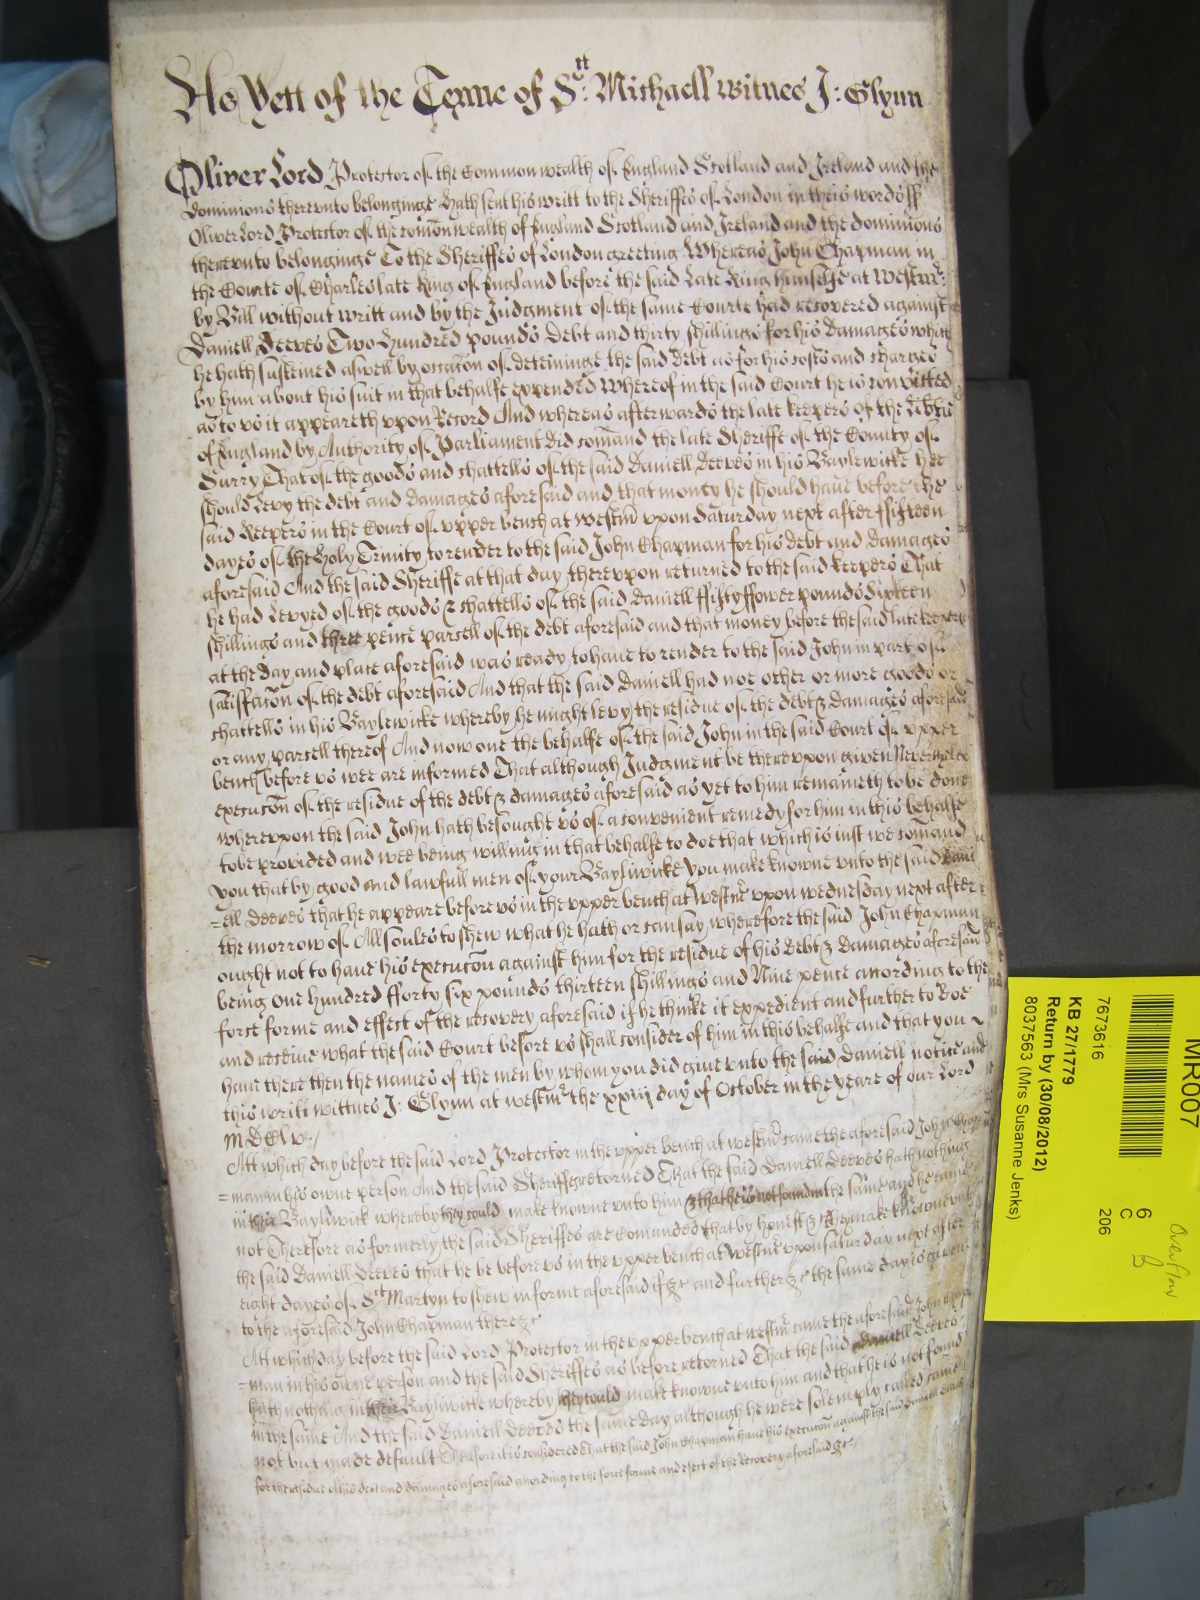 As Yett of the Terme of Stt: Michaell Witnes J: Glynn
Oliver Lord Protector of the Common wealth of England Scotland and Ireland and the
dominions therevnto belonginge hath sent his writt to the Sheriffes of London in theis words ss
Oliver Lord Protector of the comon wealth of England Scotland and Ireland and the dominions
therevnto belonginge To the Sheriffes of London greeting Whereas John Chapman in
the Courte of Charles late King of England before the said Late King himselfe at Westmr:
by Bill without writt and by the Judgment of the same Courte had recovered against
Daniell Deeves Two hundred pounds debt and thirty shillings for his damages which
he hath susteined aswell by occacon of deteininge the said debt as for his costs and charges
by him about his suit in that behalfe expended Whereof in the said Court he is convicted
as to vs it appeareth vpon Record And whereas afterwards the late keepers of the Libtie
of England by Authority of Parliament did comand the late Sheriffe of the County of
Surry That of the goods and chattells of the said Daniell Deeves in his Baylewicke hee
should Levy the debt and damages aforesaid and that money he should haue before the
said Keepers in the Court of vpper bench at westmr vpon Saturday next after fifteen
dayes of the Holy Trinity to render to the said John Chapman for his debt and damages
aforesaid And the said Sheriffe at that day therevpon returned to the said keepers That
he had Levyed of the goods & chattells of the said Daniell ffifty ffower pounds Sixteen
shillings and three pence parcell of the debt aforesaid and that money before the said late keepers
at the day and place aforesaid was ready to haue to render to the said John in part of
satisffacon of the debt aforesaid And that the said Daniell had noe other or more goods or
chattells in his Baylewicke whereby he might levy the residue of the debt & damages aforesaid
or any parcell thereof And now one the behalfe of the said John in the said Court of vpper
bench before vs wee are informed That although Judgment be therevpon given Nevertheles
execucon of the residue of the debt & damages aforesaid as yet to him remaineth to be done
wherevpon the said John hath besought vs of a convenient remedy for him in this behalfe
to be provided and wee being willing in that behalfe to doe that which is iust we comand
you that by good and lawfull men of your Bayliwicke you make knowne vnto the said Dani
=ell Deeves that he appeare before vs in the vpper bench at Westmr vpon wednesday next after
the morrow of All soules to shew what he hath or can say wherefore the said John Chapman
ought not to haue his execucon against him for the residue of his debt & damages aforesaid
being one hundred fforty six pounds thirteen shillings and Nine pence according to the
force forme and effect of the recovery aforesaid if he thinke it expedient and further to doe
and receiue what the said Court before vs shall consider of him in this behalfe and that you
haue there then the names of the men by whom you did giue vnto the said Daniell notice and
this writt wittnes J: Glynn at westmr the xxiij day of October in the yeare of our Lord
MDClv:/
Att which day before the said Lord Protector in the vpper bench at westmr came the aforesaid John Chap
=man in his owne person And the said Sheriffes retorned That the said Daniell Deeves hath nothing
in their Bayliwick whereby they could make knowne vnto him & that he is not found in the same and he came
not Therefore as formerly the said Sheriffes are Comanded that by honest &c they make knowne vnto
the said Daniell Deeves that he be before vs in the vpper bench at Westmr vpon saturday next after
eight dayes of Stt Martyn to shew in forme aforesaid if &c and further &c the same day is given
to the aforesaid John Chapman there &c
Att which day before the said Lord Protector in the vpper bench at westmr came the aforesaid John Chap
=man in his owne person and the said Sheriffes as before retorned That the said Daniell Deeves
hath nothing in their Bayliwicke whereby they could make knowne vnto him and that he is not found
in the same And the said Daniell Deeves the same day although he were solempnly called came
not but made default Therefore it is considered That the said John Chapman haue his execucon against the said Daniell
for the residue of his debt and damages aforesaid according to the force forme and efect of the Recovery aforesaid &c
MR007
7673616
KB 27/1779
Return by (30/08/2012)
8037563 (Mrs Susanne Jenks)
6
C
206
Overflow